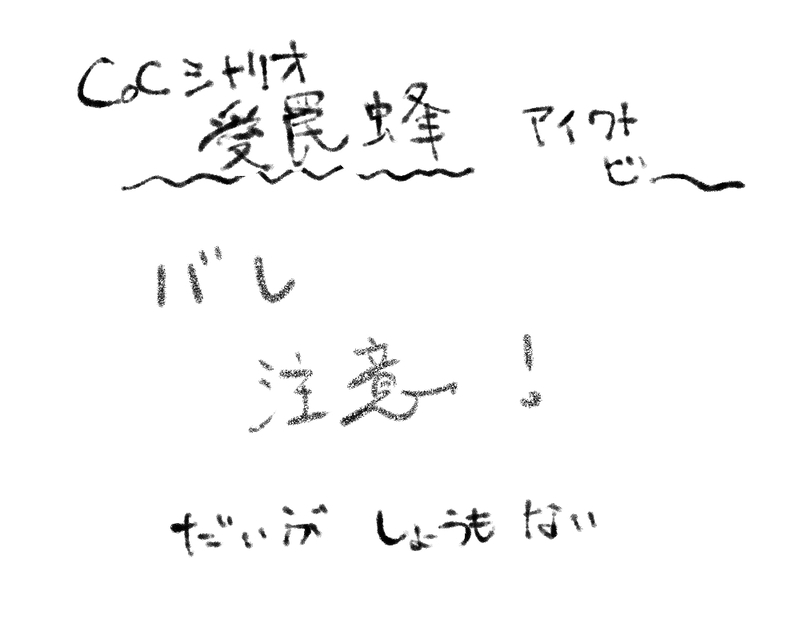 CoCシナリオ
愛罠蜂 アイワナ
ビー
バレ
注意!
だいぶ しょうもない